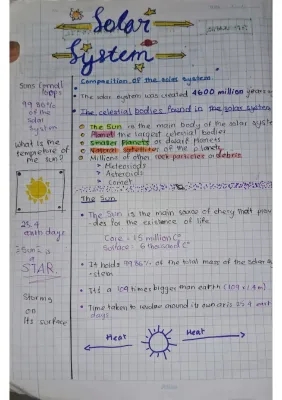 Solar
System
Composition of the solar system
The solar system was created 4600 million years
The celestial bodies found in the solar system
The Sun is the main body of the solar syste
Planet the largest celestial bodies
Smaller Planets or dwarf planets
Natural satellites of the planets
Millions of other rock particles or debris
Meteoriods
Asteroids
Comet
The Sun
The Sun is the main source of energy that prov
ides for the existence of life.
Core - 15 million C°
Surface - 6 thousand C°
It holds 99.86% of the total mass of the solar sy
-stem
It's a 109 times bigger than earth
Time taken to revolve around its own axis 25.4 earth
days.
Heat
Heat
Sun's
99.86%
of the
Solar
System
What is the
temperature of
the sun?
25.4
earth days
Sun is a
STAR.
Storms
on
its surface